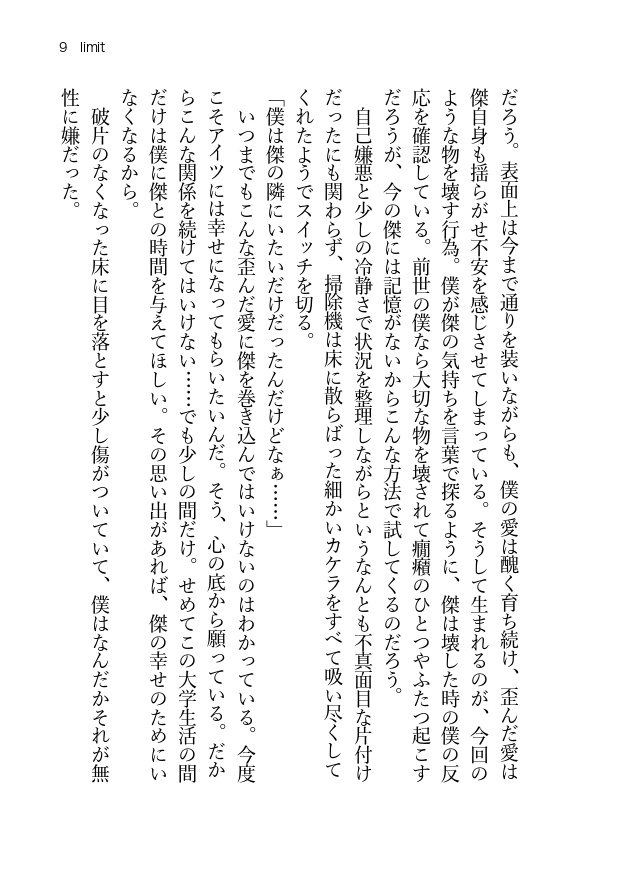 9 limit
だろう。表面上は今まで通りを装いながらも、僕の愛は醜く育ち続け、歪んだ愛は
傑自身も揺らがせ不安を感じさせてしまっている。そうして生まれるのが、今回の
ような物を壊す行為。僕が傑の気持ちを言葉で探るように、傑は壊した時の僕の反
応を確認している。前世の僕なら大切な物を壊されて癇癪のひとつやふたつ起こす
だろうが、今の傑には記憶がないからこんな方法で試してくるのだろう。
　自己嫌悪と少しの冷静さで状況を整理しながらというなんとも不真面目な片付け
だったにも関わらず、掃除機は床に散らばった細かいカケラをすべて吸い尽くして
くれたようでスイッチを切る。
「僕は傑の隣にいたいだけだったんだけどなぁ……」
　いつまでもこんな歪んだ愛に傑を巻き込んではいけないのはわかっている。今度
こそアイツには幸せになってもらいたいんだ。そう、心の底から願っている。だか
らこんな関係を続けてはいけない……でも少しの間だけ。せめてこの大学生活の間
だけは僕に傑との時間を与えてほしい。その思い出があれば、傑の幸せのためにい
なくなるから。
　破片のなくなった床に目を落とすと少し傷がついていて、僕はなんだかそれが無
性に嫌だった。